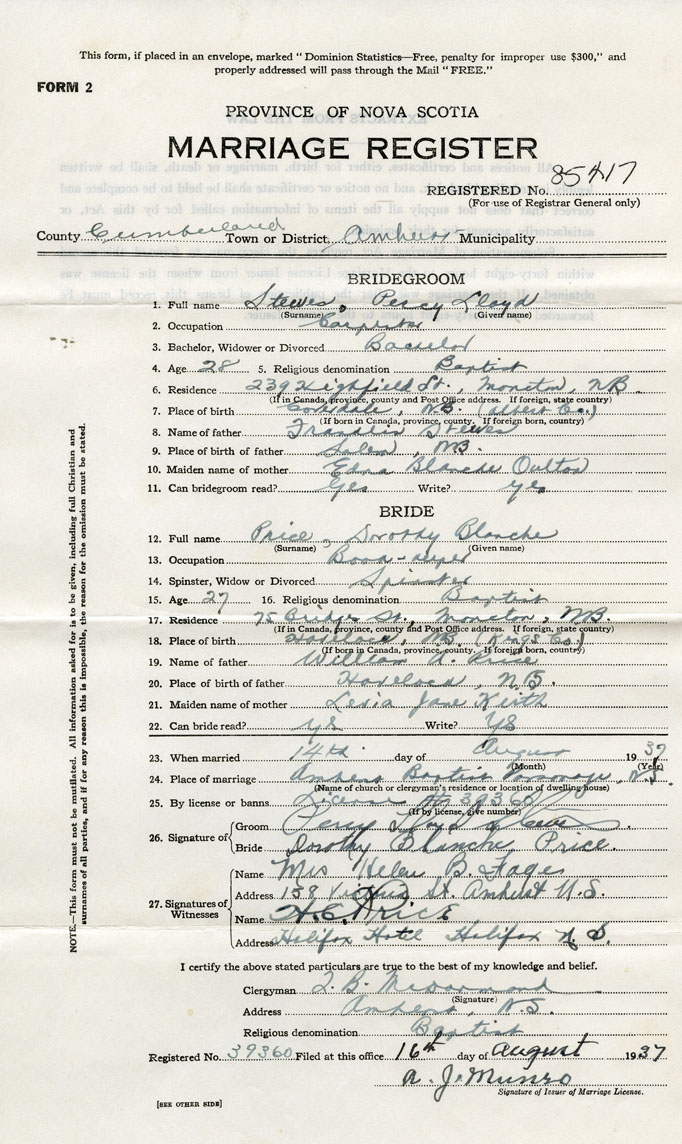 This form, if placed in an envelope, marked "Dominion Statistics—Free, penalty for improper use $300," and
properly addressed will pass through the Mail "FREE."
FORM 2
PROVINCE OF NOVA SCOTIA
MARRIAGE REGISTER
REGISTERED No. 85417
(For use of Registrar General only)
County Cumberland Town or District Amherst Municipality
BRIDEGROOM
1. Full name Steeves, Percy Lloyd
(Surname) (Given name)
2. Occupation Carpenter
3. Bachelor, Widower or Divorced Bachelor
4. Age 28 5. Religious denomination Baptist
6. Residence 239 Highfield St., Moncton, NB
(If in Canada, province, county and Post Office address. If foreign, state country)
7. Place of birth Coverdale, N.B. (Albert Co.)
(If born in Canada, province, county. If foreign born, country)
8. Name of father Franklin Steeves
9. Place of birth of father Salem, N.B.
10. Maiden name of mother Edna Blanche Oulton
11. Can bridegroom read? Yes Write? Yes
BRIDE
12. Full name Price, Dorothy Blanche
(Surname) (Given name)
13. Occupation Book-keeper
14. Spinster, Widow or Divorced Spinster
15. Age 27 16. Religious denomination Baptist
17. Residence 75 Bridge St., Moncton, N.B.
(If in Canada, province, county and Post Office address. If foreign, state country)
18. Place of birth Havelock, N.B. (Kings Co.)
(If born in Canada, province, county. If foreign born, country)
19. Name of father William A. Price
20. Place of birth of father Havelock, N.B.
21. Maiden name of mother Jane Keith
22. Can bride read? Yes Write? Yes
23. When married 14th day of August 1937
(Month) (Year)
24. Place of marriage Amherst Baptist Parsonage, N.S.
(Name of church or clergyman's residence or location of dwelling house)
25. By license or banns License # 39360
(If by license, give number)
26. Signature of Groom Percy Lloyd Steeves
Bride Dorothy Blanche Price.
27. Signatures of Witnesses
Name Mrs Helen B. Fages
Address 158 Victoria St. Amherst N.S.
Name H.C. Price
Address Halifax Hotel Halifax N.S.
I certify the above stated particulars are true to the best of my knowledge and belief.
Clergyman
(Signature)
Address Amherst, N.S.
Religious denomination Baptist
Registered No. 39360 Filed at this office 16th day of August 1937
A. J. Munro
Signature of Issuer of Marriage License.
[SEE OTHER SIDE]
NOTE.—This form must not be mutilated. All information asked for is to be given, including full Christian and
surnames of all parties, and if for any reason this is impossible, the reason for the omission must be stated.